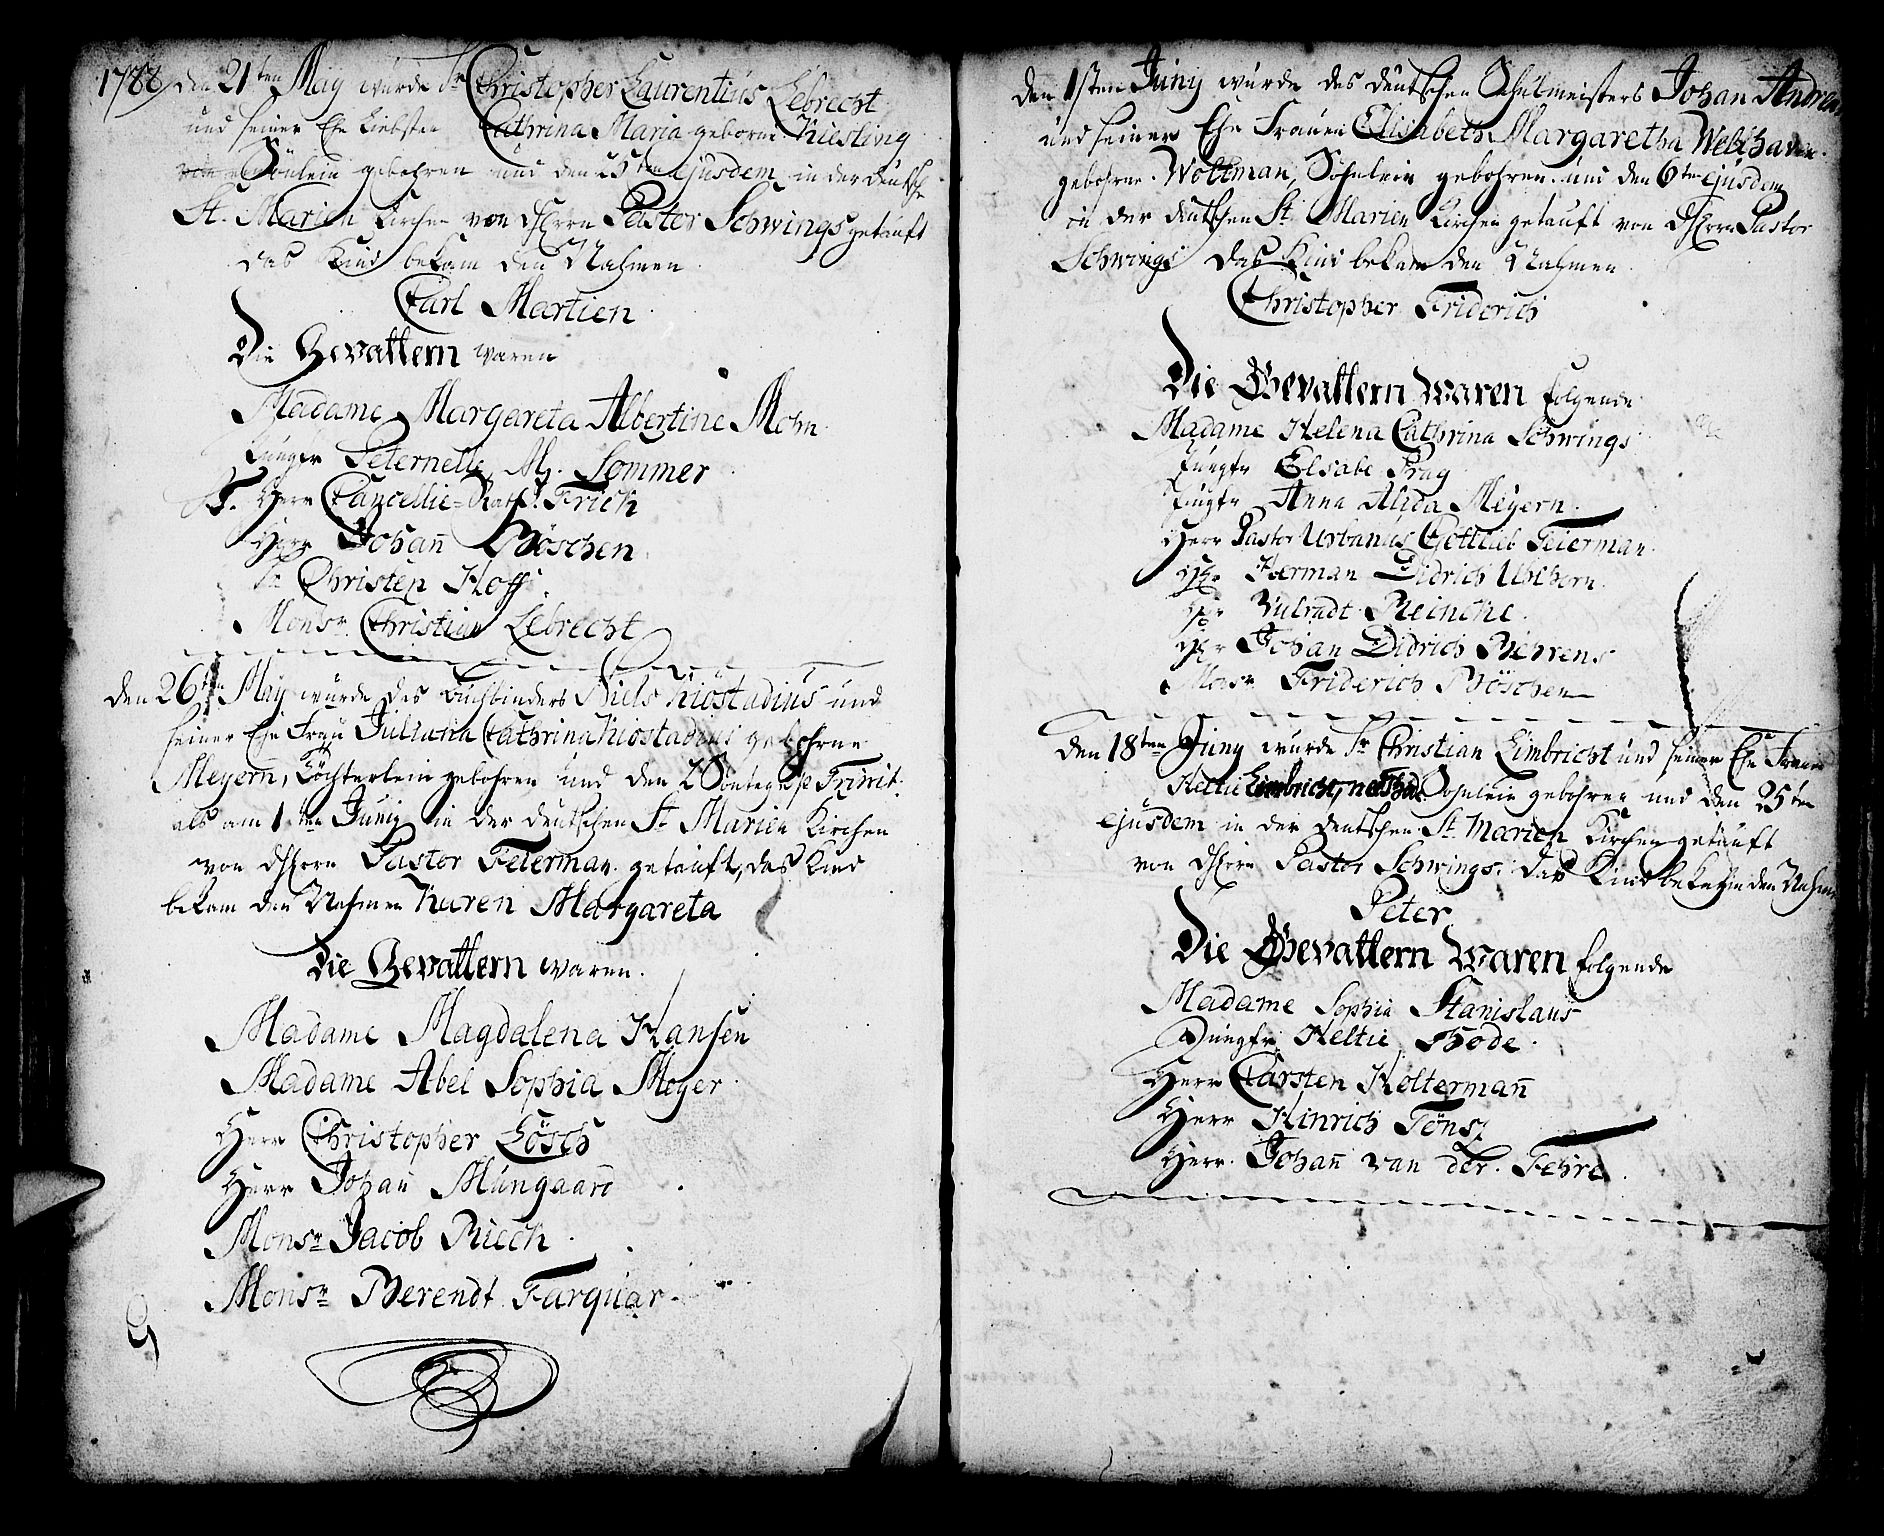 1788 den 21ten May wurde Sr Christopher Laurentius Lebrecht
und seiner Ehe Liebsten Cathrina Maria geborne Kiesling
Söhnlein gebohren und den 25ten Ejusdem in der deutsche
St. Marien Kirchen von dHerrn Pastor Schwings getauft
das Kind bekam den Nahmen
Carl Martien
Die Gevattern waren
Madame Margareta Albertine Mohn
Jungfr Peternelle M. Sommer
S. Herr Cancellie-Rath Frich
Herr Johan̄ Böschen
Sr Christen Hoff
Monsr Christian Lebrecht
den 26ten May wurde des buchbinders Niels Kiöstadius und
seiner Ehe Frau Juliana Cathrina Kiostadius gebohrne
Meyern, Töchterlein gebohren und den 2 Sontag p Trinit.
als am 1ten Juny in der deutschen St Marien Kirchen
von dHerrn Pastor Feierman getauft, das Kind
bekam den Nahmen Karen Margareta
Die Gevattern waren.
Madame Magdalena Hansen
Madame Abel Sophia Meyer
Herr Christopher Lösch
Herr Johan Mungaard
Monsr Jacob Riech
Monsr Berendt Farquar
den 1sten Juny wurde des deutschen Schulmeisters Johan Andreas
und seiner Ehe Frauen Elisabeth Margaretha Welthaven
gebohrne Woltman, Söhnlein gebohren und den 6ten ejusdem
in der deutschen St. Marien Kirchen getauft von dHerrn Pastor
Schwings das Kind bekam den Nahmen
Christopher Friderich
Die Gevattern Waren folgende
Madame Helena Cathrina Schwings
Jungfr Elsabe Prag
Jungfr Anna Alida Meyern
Herr Pastor Urbanus Gottlieb Feierman
Hr Herman Didrich Uhlhorn
Hr Vulradt Reinche
Hr Johan Didrich Behrens
Monsr Friderich Böschen
den 18ten Juny wurde Sr Christian Limbricht und seiner Ehe Frauen
Heltie Limbricht, Sohnlein gebohren und den 25ten
ejusdem in der deutschen St. Marien Kirchen getauft
von dHerrn Pastor Schwings. das Kind bekahm den Nahmen
Peter
Die Gevattern Waren folgende
Madame Sophia Stanislaus
Jungfr Heltie Bode
Herr Carsten Holterman̄
Herr Hinrich Töns
Herr Johan̄ van der Fehre